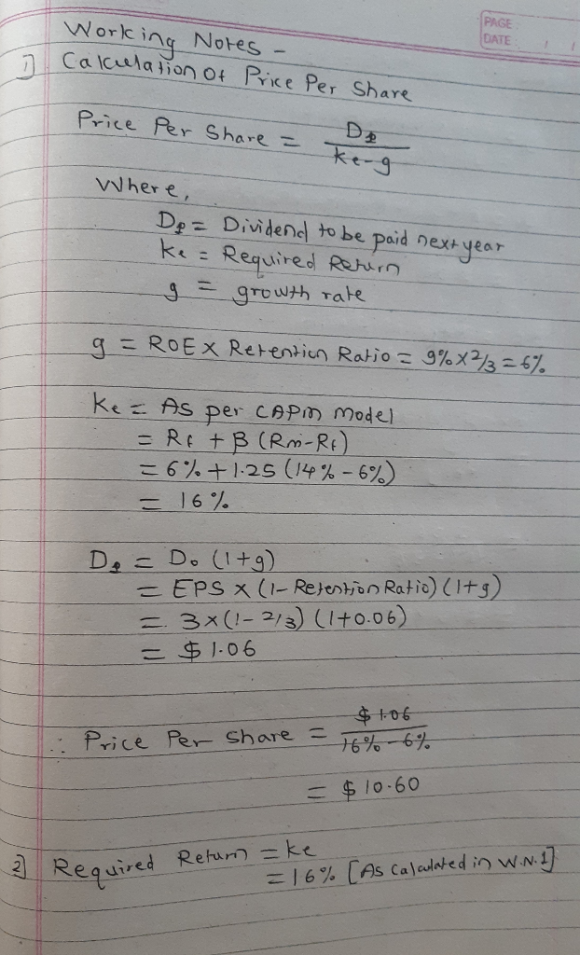 PAGE
DATE / /
Working Notes -
1] Calculation Of Price Per Share
Price Per Share = D1 / ke-g
Where,
D1 = Dividend to be paid next year
ke = Required Return
g = growth rate
g = ROE X Retention Ratio = 9% X 2/3 = 6%
Ke = As per CAPM model
= Rf + β (Rm-Rf)
= 6% + 1.25 (14% - 6%)
= 16%
D1 = D0 (1+g)
= EPS X (1- Retention Ratio) (1+g)
= 3x(1- 2/3) (1+0.06)
= $ 1.06
∴ Price Per share = $ 1.06 / 16% - 6%
= $ 10.60
2] Required Return = ke
= 16% [As Calculated in W.N.1]